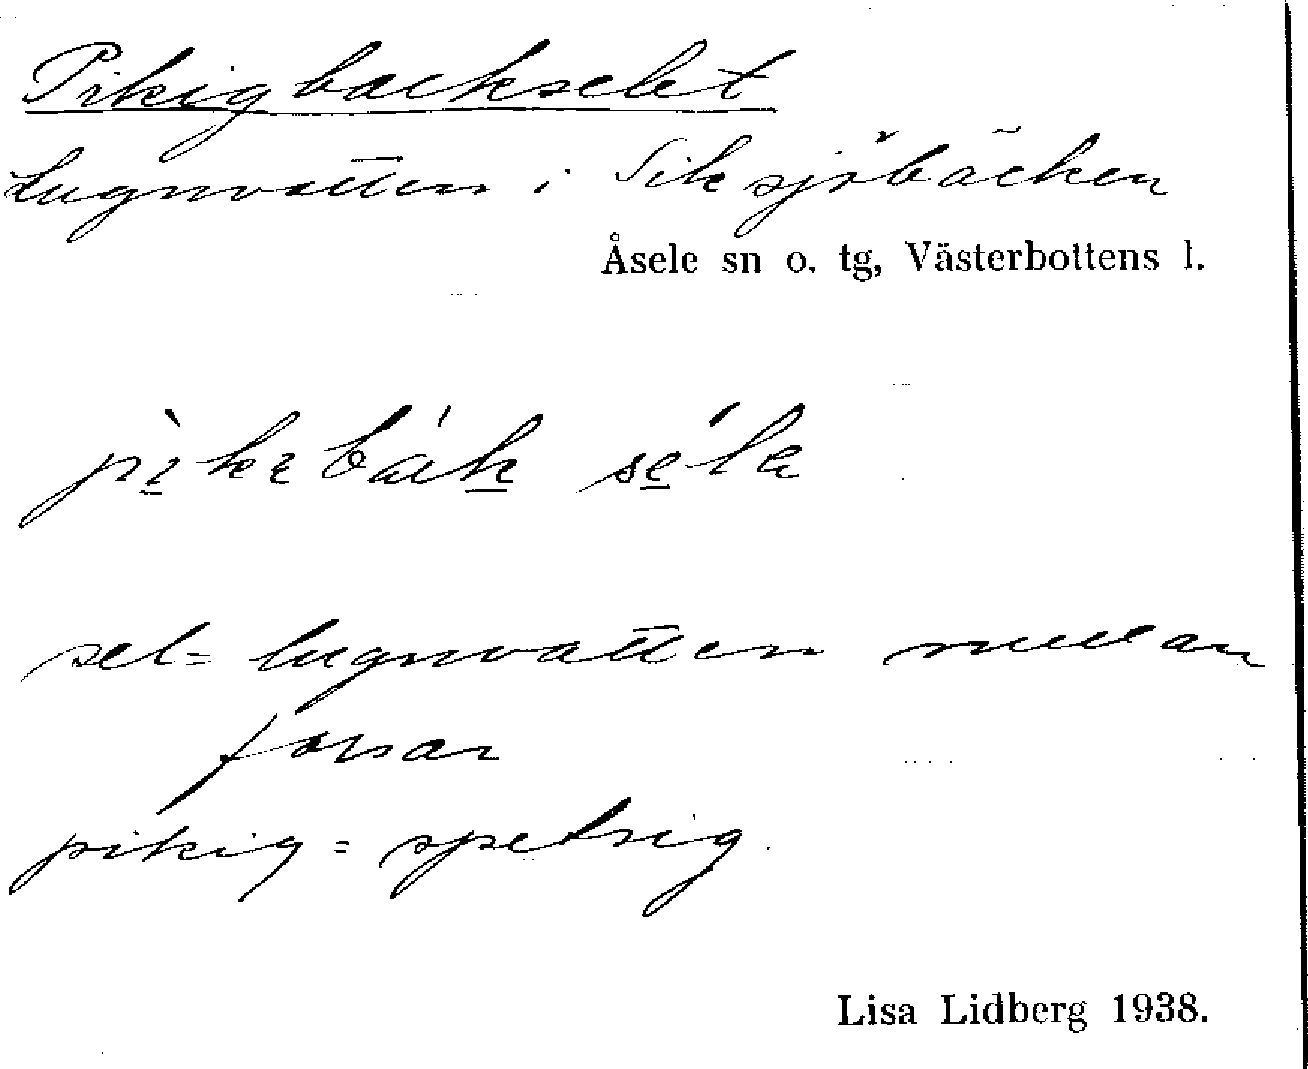 Pikigbackselet
Lugnvatten i Siksjöbäcken
Åsele sn o. tg, Västerbottens l.
sel = lugnvatten mellan
forsar
pikig = spetsig.
Lisa Lidberg 1938.